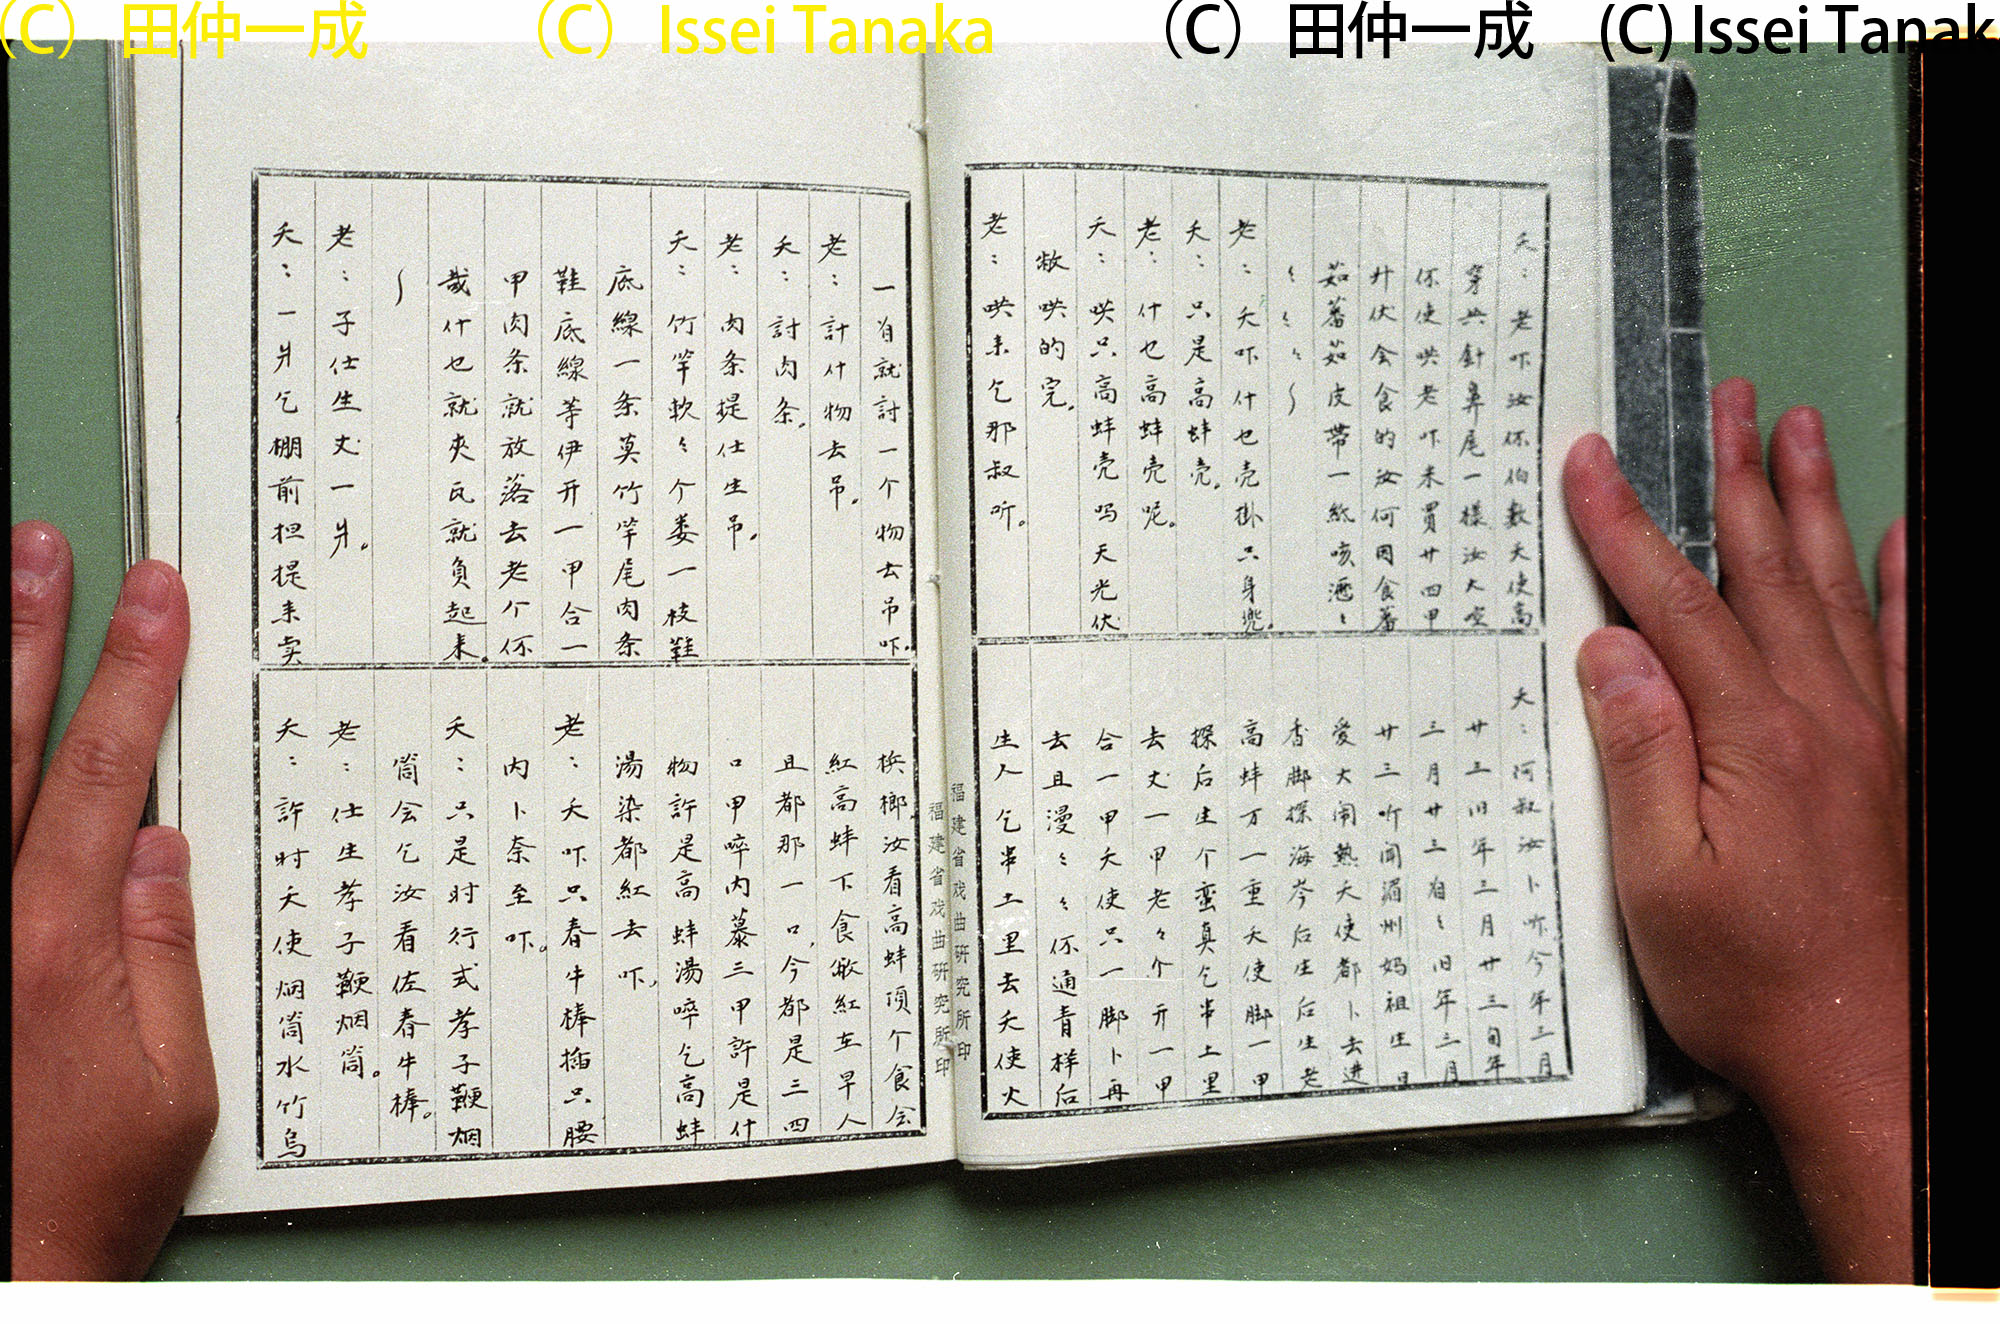 (C) 田仲一成
(C) Issei Tanaka
(C) 田仲一成
(C) Issei Tanak
夭：老吓汝伓伯敷夭使高
穿共針鼻尾一樣汝大空
伓使哄老吓未買廿四甲
廾伏会食的汝何因食蕃
茹蕃茹皮帶一紙咳酒〻
〻〻〻
老：夭吓什乜壳掛只身兜。
夭：只是高蚌壳。
老：什乜高蚌壳呢。
夭：哄只高蚌壳吗天光伏
敝哄的完。
老：哄来乞那叔听。
夭：河叔汝卜听今年三月
廿三旧年三月廿三旬年
三月廿三旬〻旧年三月
廿三听聞湄州妈祖生日
爱大闹熱夭使都卜去进
香脚探海岑后生后生老
高蚌万一重夭使脚一甲
探后生个蛮真乞串土里
去丈一甲老〻个开一甲
合一甲夭使只一脚卜再
去且漫〻〻伓通青样后
生人乞串土里去夭使火
福建省戏曲研究所印
福建省戏曲研究所印
一旬就討一个物去吊吓。
老：討什物去吊。
夭：討肉条。
老：肉条提仕生吊。
夭：竹竿軟〻个娄一枝鞋
底線一条莫竹竿尾肉条
鞋底線等伊开一甲合一
甲肉条就放落去老个伓
哉什乜就夾瓦就負起来。
老：子仕生丈一爿。
夭：一爿乞棚前担提来卖
梹榔汝看高蚌頂个食会
紅高蚌下食㑁紅在早人
且都那一口，今都是三四
口甲啐内慕三甲許是什
物許是高蚌湯啐乞高蚌
湯染都紅去吓，
老：夭吓只春牛棒插只腰
内卜奈至吓。
夭：只是时行式孝子鞭烟
筒会乞汝看佐春牛棒。
老：仕生孝子鞭烟筒。
夭：許时夭使烟筒水竹乌